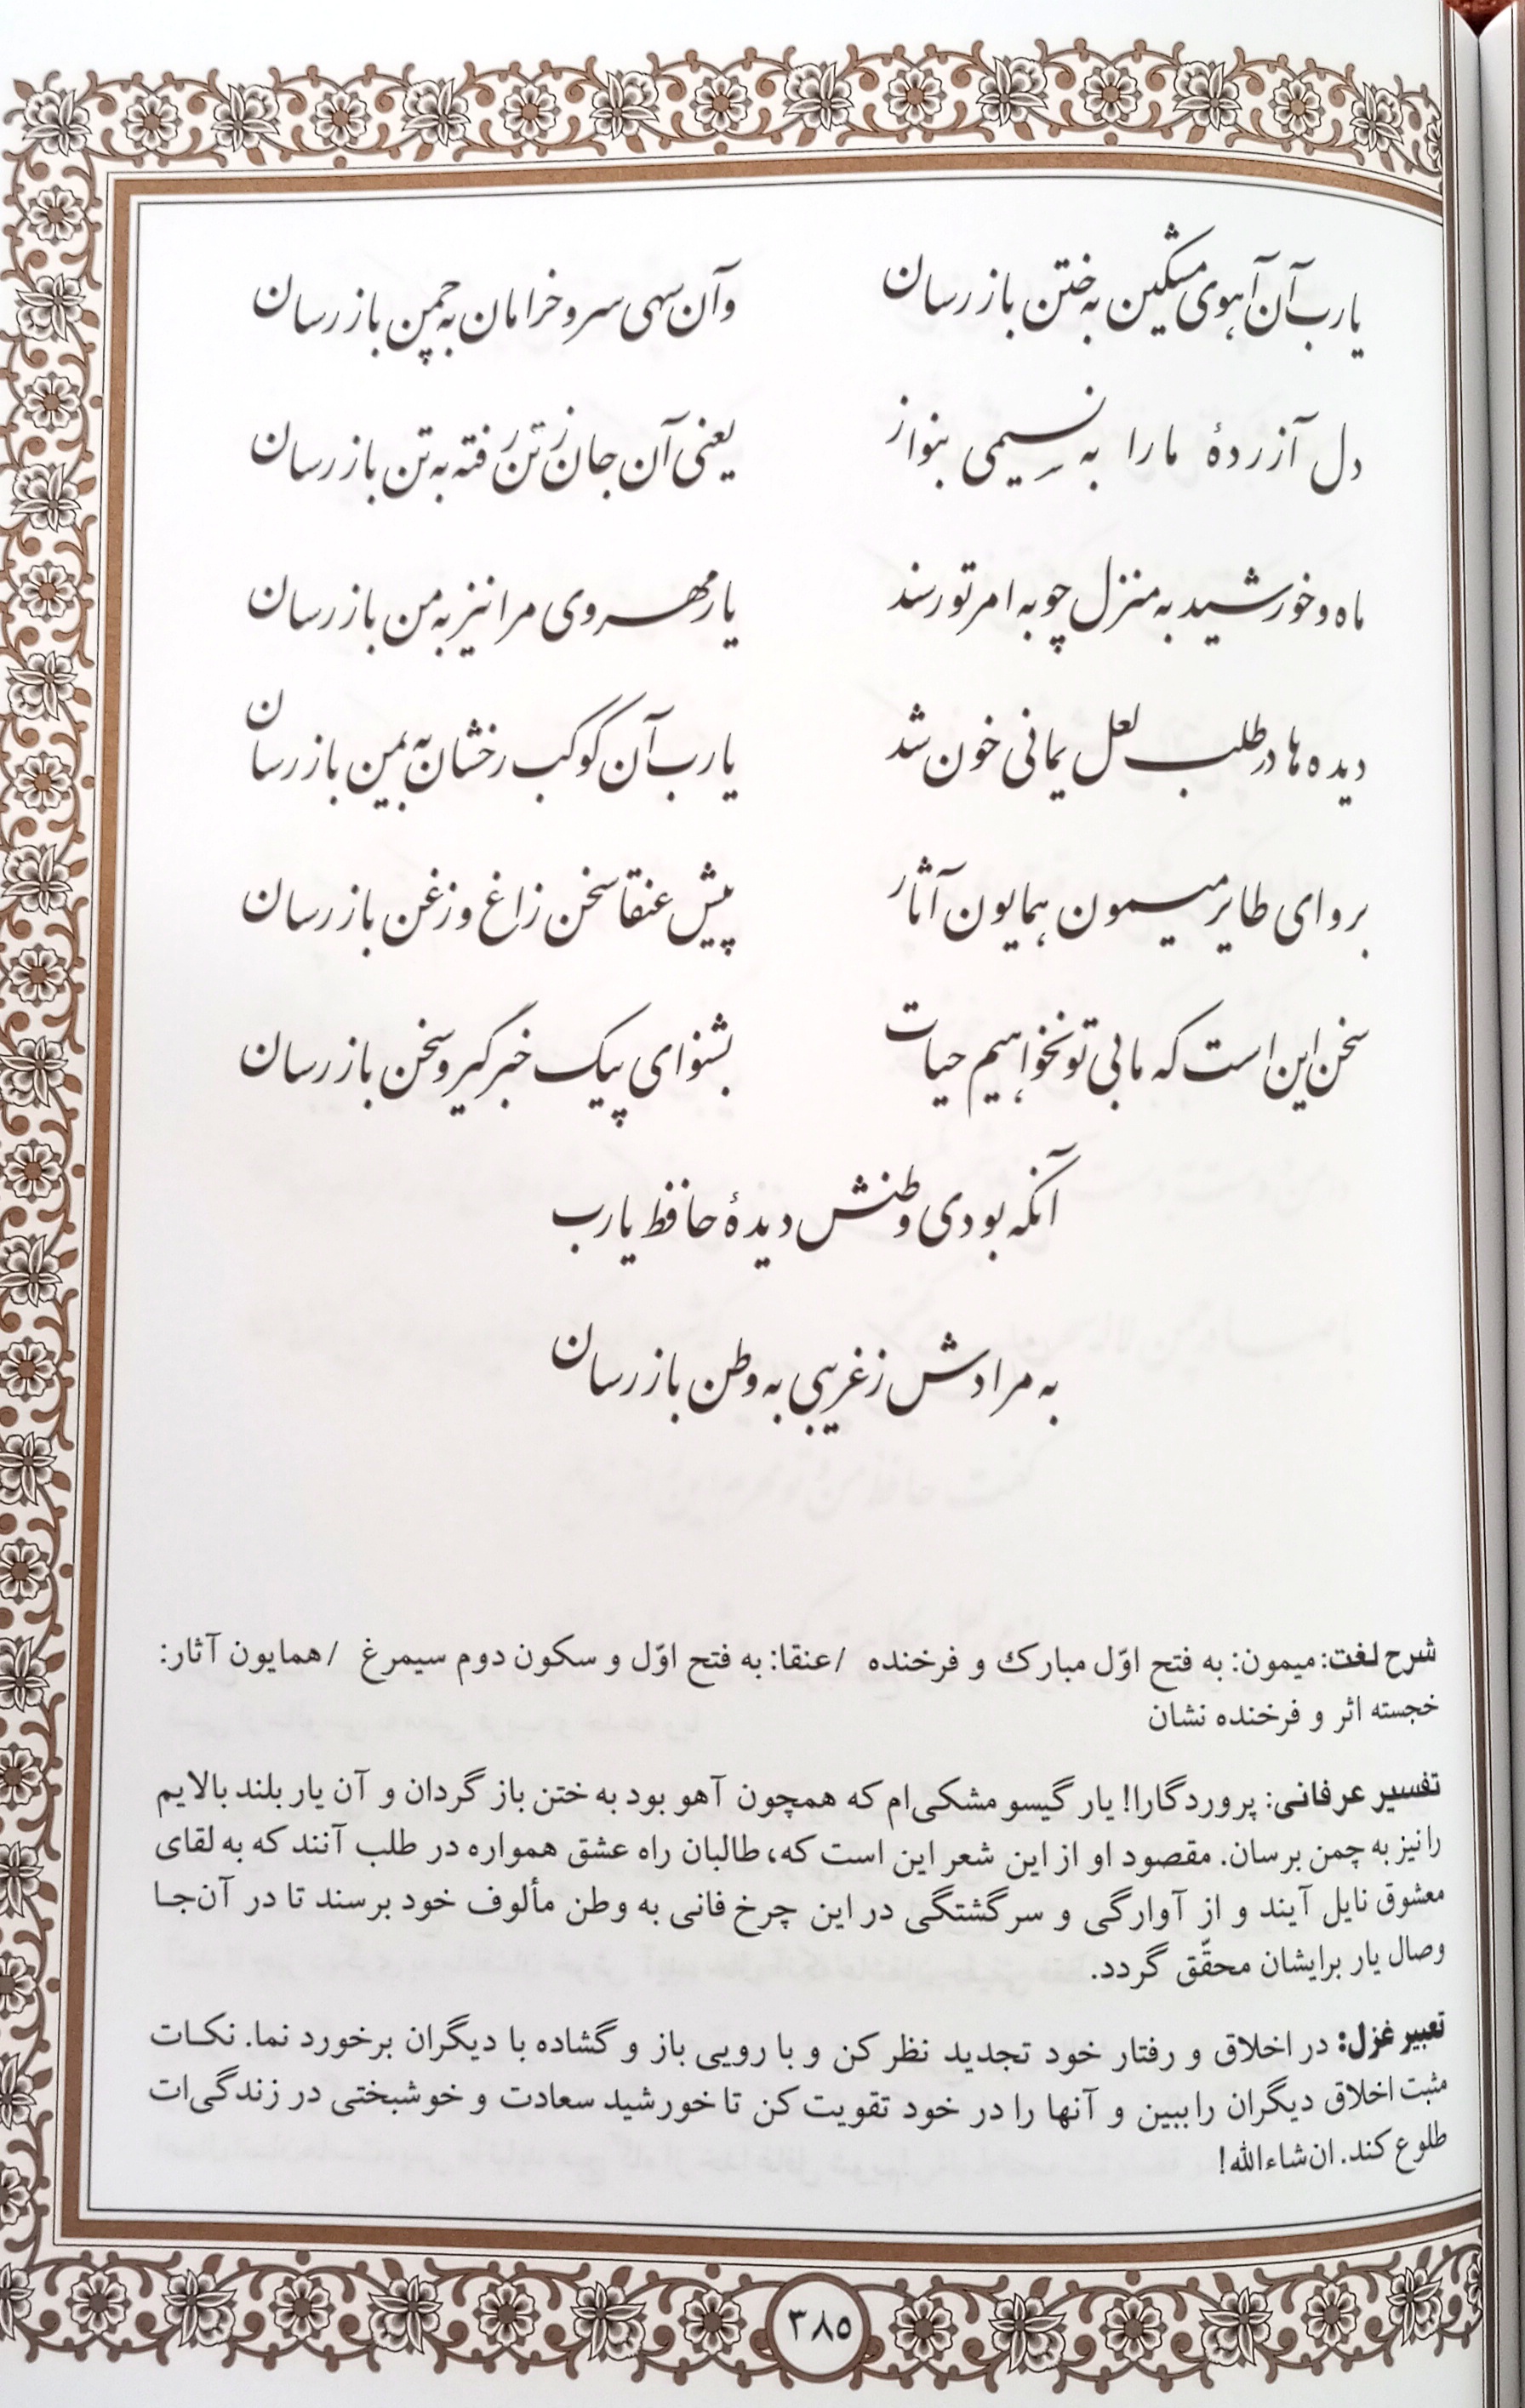 یارب آن آهوی مشکین به ختن بازرسان
وآن سهی سرو خرامان به چمن بازرسان
دل آزردهٔ ما را به نسیمی بنواز
یعنی آن جان ز تن رفته به تن بازرسان
ماه و خورشید به منزل چو به امر تو رسند
یار مهروی مرا نیز به من بازرسان
دیده‌ها در طلب لعل یمانی خون شد
یارب آن کوکب رخشان به یمن بازرسان
برو ای طایر میمون همایون آثار
پیش عنقا سخن زاغ و زغن بازرسان
سخن این است که ما بی تو نخواهیم حیات
بشنو ای پیک خبرگیر و سخن بازرسان
آنکه بودی وطنش دیدهٔ حافظ یارب
به مرادش ز غریبی به وطن بازرسان
شرح لغت: میمون: به فتح اوّل مبارک و فرخنده / عنقا: به فتح اوّل و سکون دوم سیمرغ / همایون آثار:
خجسته اثر و فرخنده نشان
تفسیر عرفانی: پروردگارا! یار گیسو مشکی‌ام که همچون آهو بود به ختن باز گردان و آن یار بلند بالایم
را نیز به چمن برسان. مقصود او از این شعر این است که، طالبان راه عشق همواره در طلب آنند که به لقای
معشوق نایل آیند و از آوارگی و سرگشتگی در این چرخ فانی به وطن مألوف خود برسند تا در آن‌جا
وصال یار برایشان محقّق گردد.
تعبیر غزل: در اخلاق و رفتار خود تجدید نظر کن و با رویی باز و گشاده با دیگران برخورد نما. نکات
مثبت اخلاق دیگران را ببین و آنها را در خود تقویت کن تا خورشید سعادت و خوشبختی در زندگی‌ات
طلوع کند. ان‌شاءالله!
۳۸۵